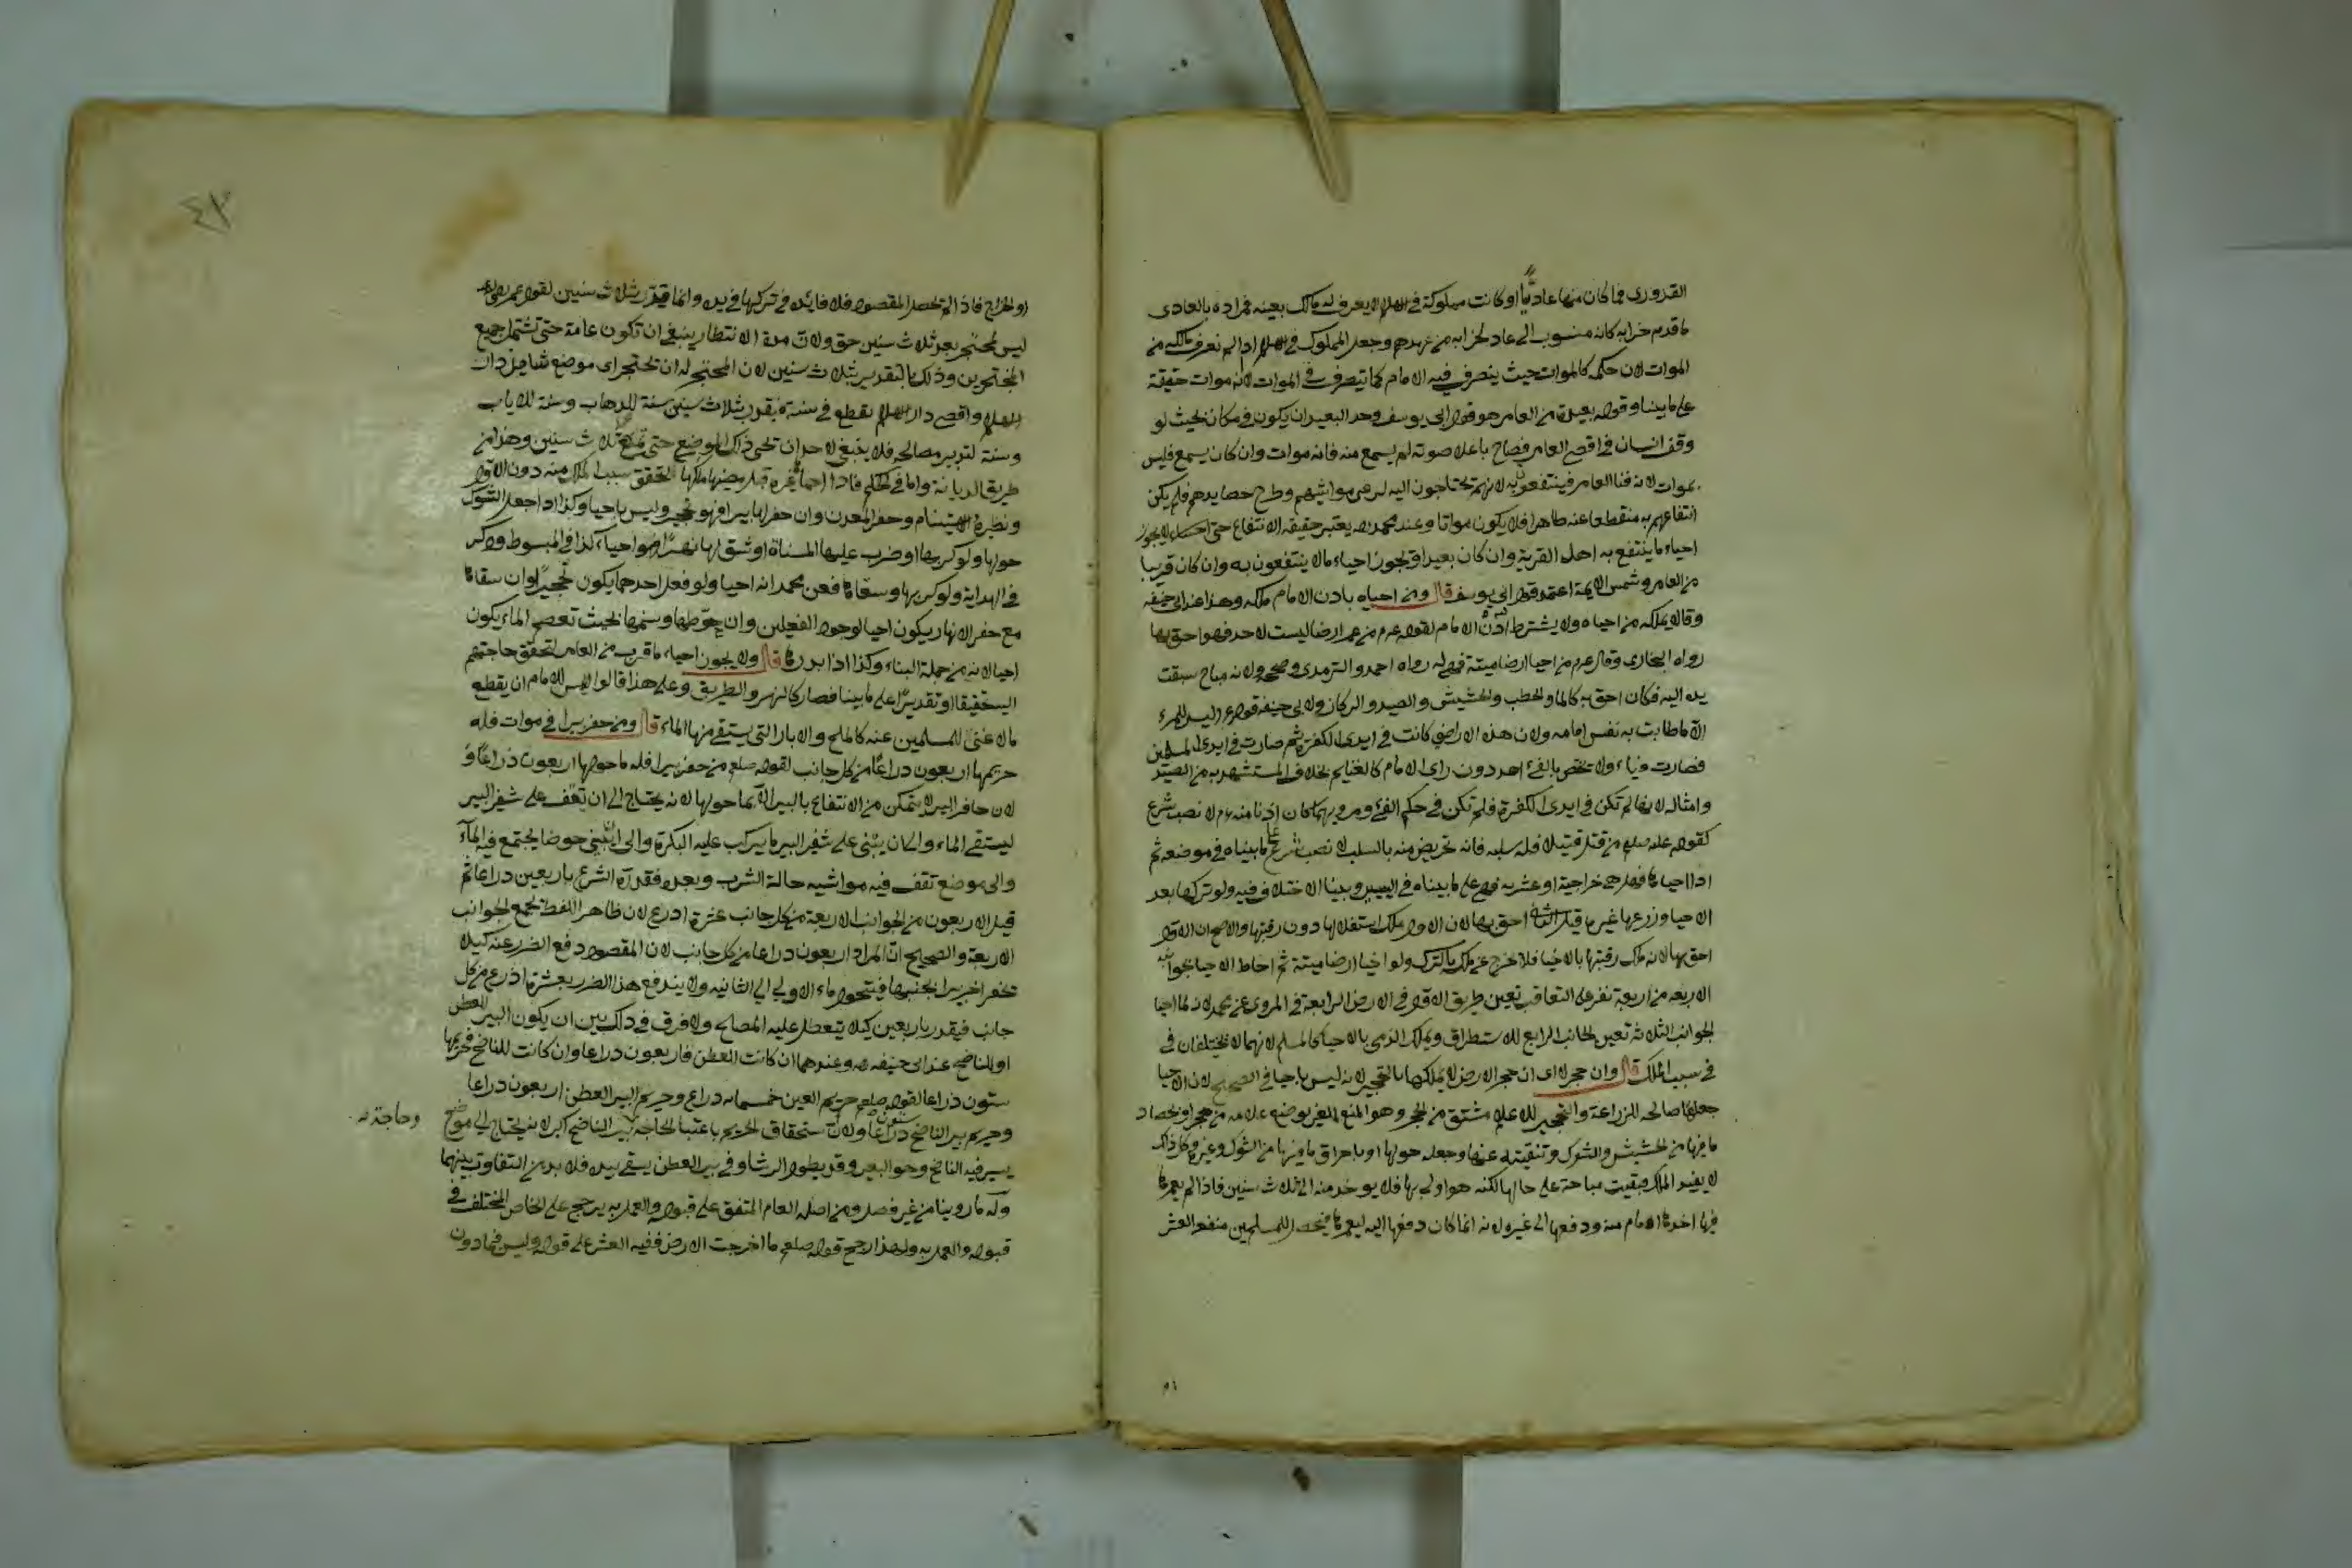 القدوري فما كان منها عاديا او كانت مملوكة في الاسلام لا يعرف له مالك بعينه فمراده بالعادي
ما قدم خرابه كانه منسوب الى عاد لخرابه من عهدهم وجعل المملوك في الاسلام اذا لم يعرف مالكه من
الموات لان حكمه كالموات حيث يتصرف فيه الامام كما يتصرف في الموات لانه موات حقيقة
على ما بينا وقوله بعيدة من العامر هو قول ابي يوسف وحد البعيد ان يكون في مكان بحيث لو
وقف انسان في اقصى العامر فصاح باعلا صوته لم يسمع منه فانه موات وان كان يسمع فليس
بموات لانه فنا العامر فينتفعون به لانهم يحتاجون اليه لرعي مواشيهم وطرح حصايدهم فلم يكن
انتفاعهم به منقطعا عنه ظاهرا فلا يكون مواتا وعند محمد رحمه يعتبر حقيقة الانتفاع حتى لا يجوز
احياء ما ينتفع به اهل القرية وان كان بعيدا ويجوز احياء ما لا ينتفعون به وان كان قريبا
من العامر وشمس الايمة اعتمد قول ابي يوسف قال ومن احياه باذن الامام ملكه وهذا عند ابي حنيفة
وقالا يملكه من احياه ولا يشترط اذن الامام لقوله عم من عمر ارضا ليست لاحد فهو احق بها
رواه البخاري وقال عم من احيا ارضا ميتة فهي له رواه احمد والترمذي وصححه ولانه مباح سبقت
يده اليه فكان احق به كالما والحطب والحشيش والصيد والركاز ولابي حنيفة قوله عم ليس للمرء
الا ما طابت به نفس امامه ولان هذه الاراضي كانت في ايدي الكفرة ثم صارت في ايدي المسلمين
فصارت فياء ولا يختص بالفيء احد دون راى الامام كالغنايم بخلاف المستشهد به من الصيد
وامثاله لانها لم تكن في ايدي الكفرة فلم تكن في حكم الفيء ومرويهما كان اذنا منه عم لا نصب شرع
كقوله عليه صلعم من قتل قتيلا فله سلبه فانه تحريض منه بالسلب لا نصب شرع على ما بيناه في موضعه ثم
اذا احياها فهل هي خراجية او عشرية فهو على ما بيناه في السير وبينا الاختلاف فيه ولو تركها بعد
الاحيا وزرعها غيره قيل الثاني احق بها لان الاول ملك استغلالها دون رقبتها والاصح ان الاول
احق بها لانه ملك رقبتها بالاحيا فلا تخرج عن ملكه بالترك ولو احيا ارضا ميتة ثم احاط الاحيا بجوانبه
الاربعة من اربعة نفر على التعاقب تعين طريق الاول في الارض الرابعة في المروي عن محمد لانه لما احيا
الجوانب الثلاثة تعين الجانب الرابع للاستطراق ويملك الذمي بالاحيا كالمسلم لانهما لا يختلفان في
في سبب الملك قال وان حجر لا اى ان حجر الارض لا يملكها بالتحجير لانه ليس باحيا في الصحيح لان الاحيا
جعلها صالحة للزراعة والتحجير للاعلام مشتق من الحجر وهو المنع للغير بوضع علامة من حجر او بحصاد
ما فيها من الحشيش والشوك وتنقيته عنها وجعله حولها او باحراق ما فيها من الشوك وغيره وكل ذلك
لا يفيد الملك فبقيت مباحة على حالها لكنه هو اولى بها فلا يوخذ منه الى ثلاث سنين فاذا لم يعمرها
فيها اخذها الامام منه ودفعها الى غيره لانه انما كان دفعها اليه ليعمرها فيحصل للمسلمين منفعة العشر
او الخراج فاذا لم تحصل المقصود فلا فائدة في تركها في يده وانما قدر بثلاث سنين لقول عمر
ليس لمحتجر بعد ثلاث سنين حق ولان مدة الانتظار ينبغي ان تكون عامة حتى تشتمل جميع
المحتجرين وذلك بالتقدير بثلاث سنين لان المحتجر له ان يحتجر اى موضع شا من دار
الاسلام واقصى دار الاسلام يقطع في سنة فيقدر بثلاث سنين سنة للذهاب وسنة للاياب
وسنة لتدبير مصالحه فلا ينبغي لاحد ان يحيي ذلك الموضع حتى تمضي ثلاث سنين وهذا من
طريق الديانة واما في الحكم فاذا احياها غيره قبل مضيها ملكها لتحقق سبب الملك منه دون الاول
ونظيره الاستيام وحفر المعدن وان حفر لها بيرا فهو تحجير وليس باحيا وكذا اذا جعل الشوك
حولها ولو كربها او ضرب عليها المسناة او شق لها نهرا فهو احياء كذا في المبسوط وذكر
في الهداية ولو كربها وسقاها فعن محمد انه احيا ولو فعل احدهما يكون تحجيرا وان سقاها
مع حفر الانهار يكون احيا لوجود الفعلين وان حوطها وسنمها بحيث تعصم الماء يكون
احيا لانه من جملة البناء وكذا اذا بذرها قال ولا يجوز احياء ما قرب من العامر لتحقق حاجتهم
اليه تحقيقا او تقديرا على ما بينا فصار كالنهر والطريق وعلى هذا قالوا ليس للامام ان يقطع
ما لا غنى للمسلمين عنه كالملح والابار التي يستقى منها الماء قال ومن حفر بيرا في موات فله
حريمها اربعون ذراعا من كل جانب لقوله صلعم من حفر بيرا فله ما حولها اربعون ذراعا و
لان حافر البير لا يتمكن من الانتفاع بالبير الا بما حولها لانه يحتاج الى ان يقف على شفير البير
ليستقي الماء والى ان يبني على شفير البير ما يركب عليه البكرة والى ان يبني حوضا يجتمع فيه الماء
والى موضع تقف فيه مواشيه حالة الشرب وبعده فقدره الشرع باربعين ذراعا ثم
قيل الاربعون من الجوانب الاربعة من كل جانب عشرة اذرع لان ظاهر اللفظ يجمع الجوانب
الاربعة والصحيح ان المراد اربعون ذراعا من كل جانب لان المقصود دفع الضرر عنه كيلا
تحفر اخر بيرا بجنبها فيتحول ماء الاولى الى الثانية ولا يندفع هذا الضرر بعشرة اذرع من كل
جانب فيقدر باربعين كيلا يتعطل عليه المصالح ولا فرق في ذلك بين ان يكون البير للعطن
او للناضح عند ابي حنيفة رحمه وعندهما ان كانت للعطن فاربعون ذراعا وان كانت للناضح فحريمها
ستون ذراعا لقوله صلعم حريم العين خمسمايه ذراع وحريم البير العطن اربعون ذراعا
وحريم بير الناضح ستون ذراعا ولان استحقاق الحريم باعتبار الحاجة وحاجة بير الناضح اكبر لانه يحتاج الى موضع
يسير فيه الناضح وهو البعير وقد يطول الرشا وفي بير العطن يستقي بيده فلا بد من التفاوت بينهما
وله ما روينا من غير فصل ومن اصله العام المتفق على قبوله والعمل به يرجح على الخاص المختلف في
قبوله والعمل به ولهذا رجح قوله صلعم ما اخرجت الارض ففيه العشر على قوله وليس فيما دون